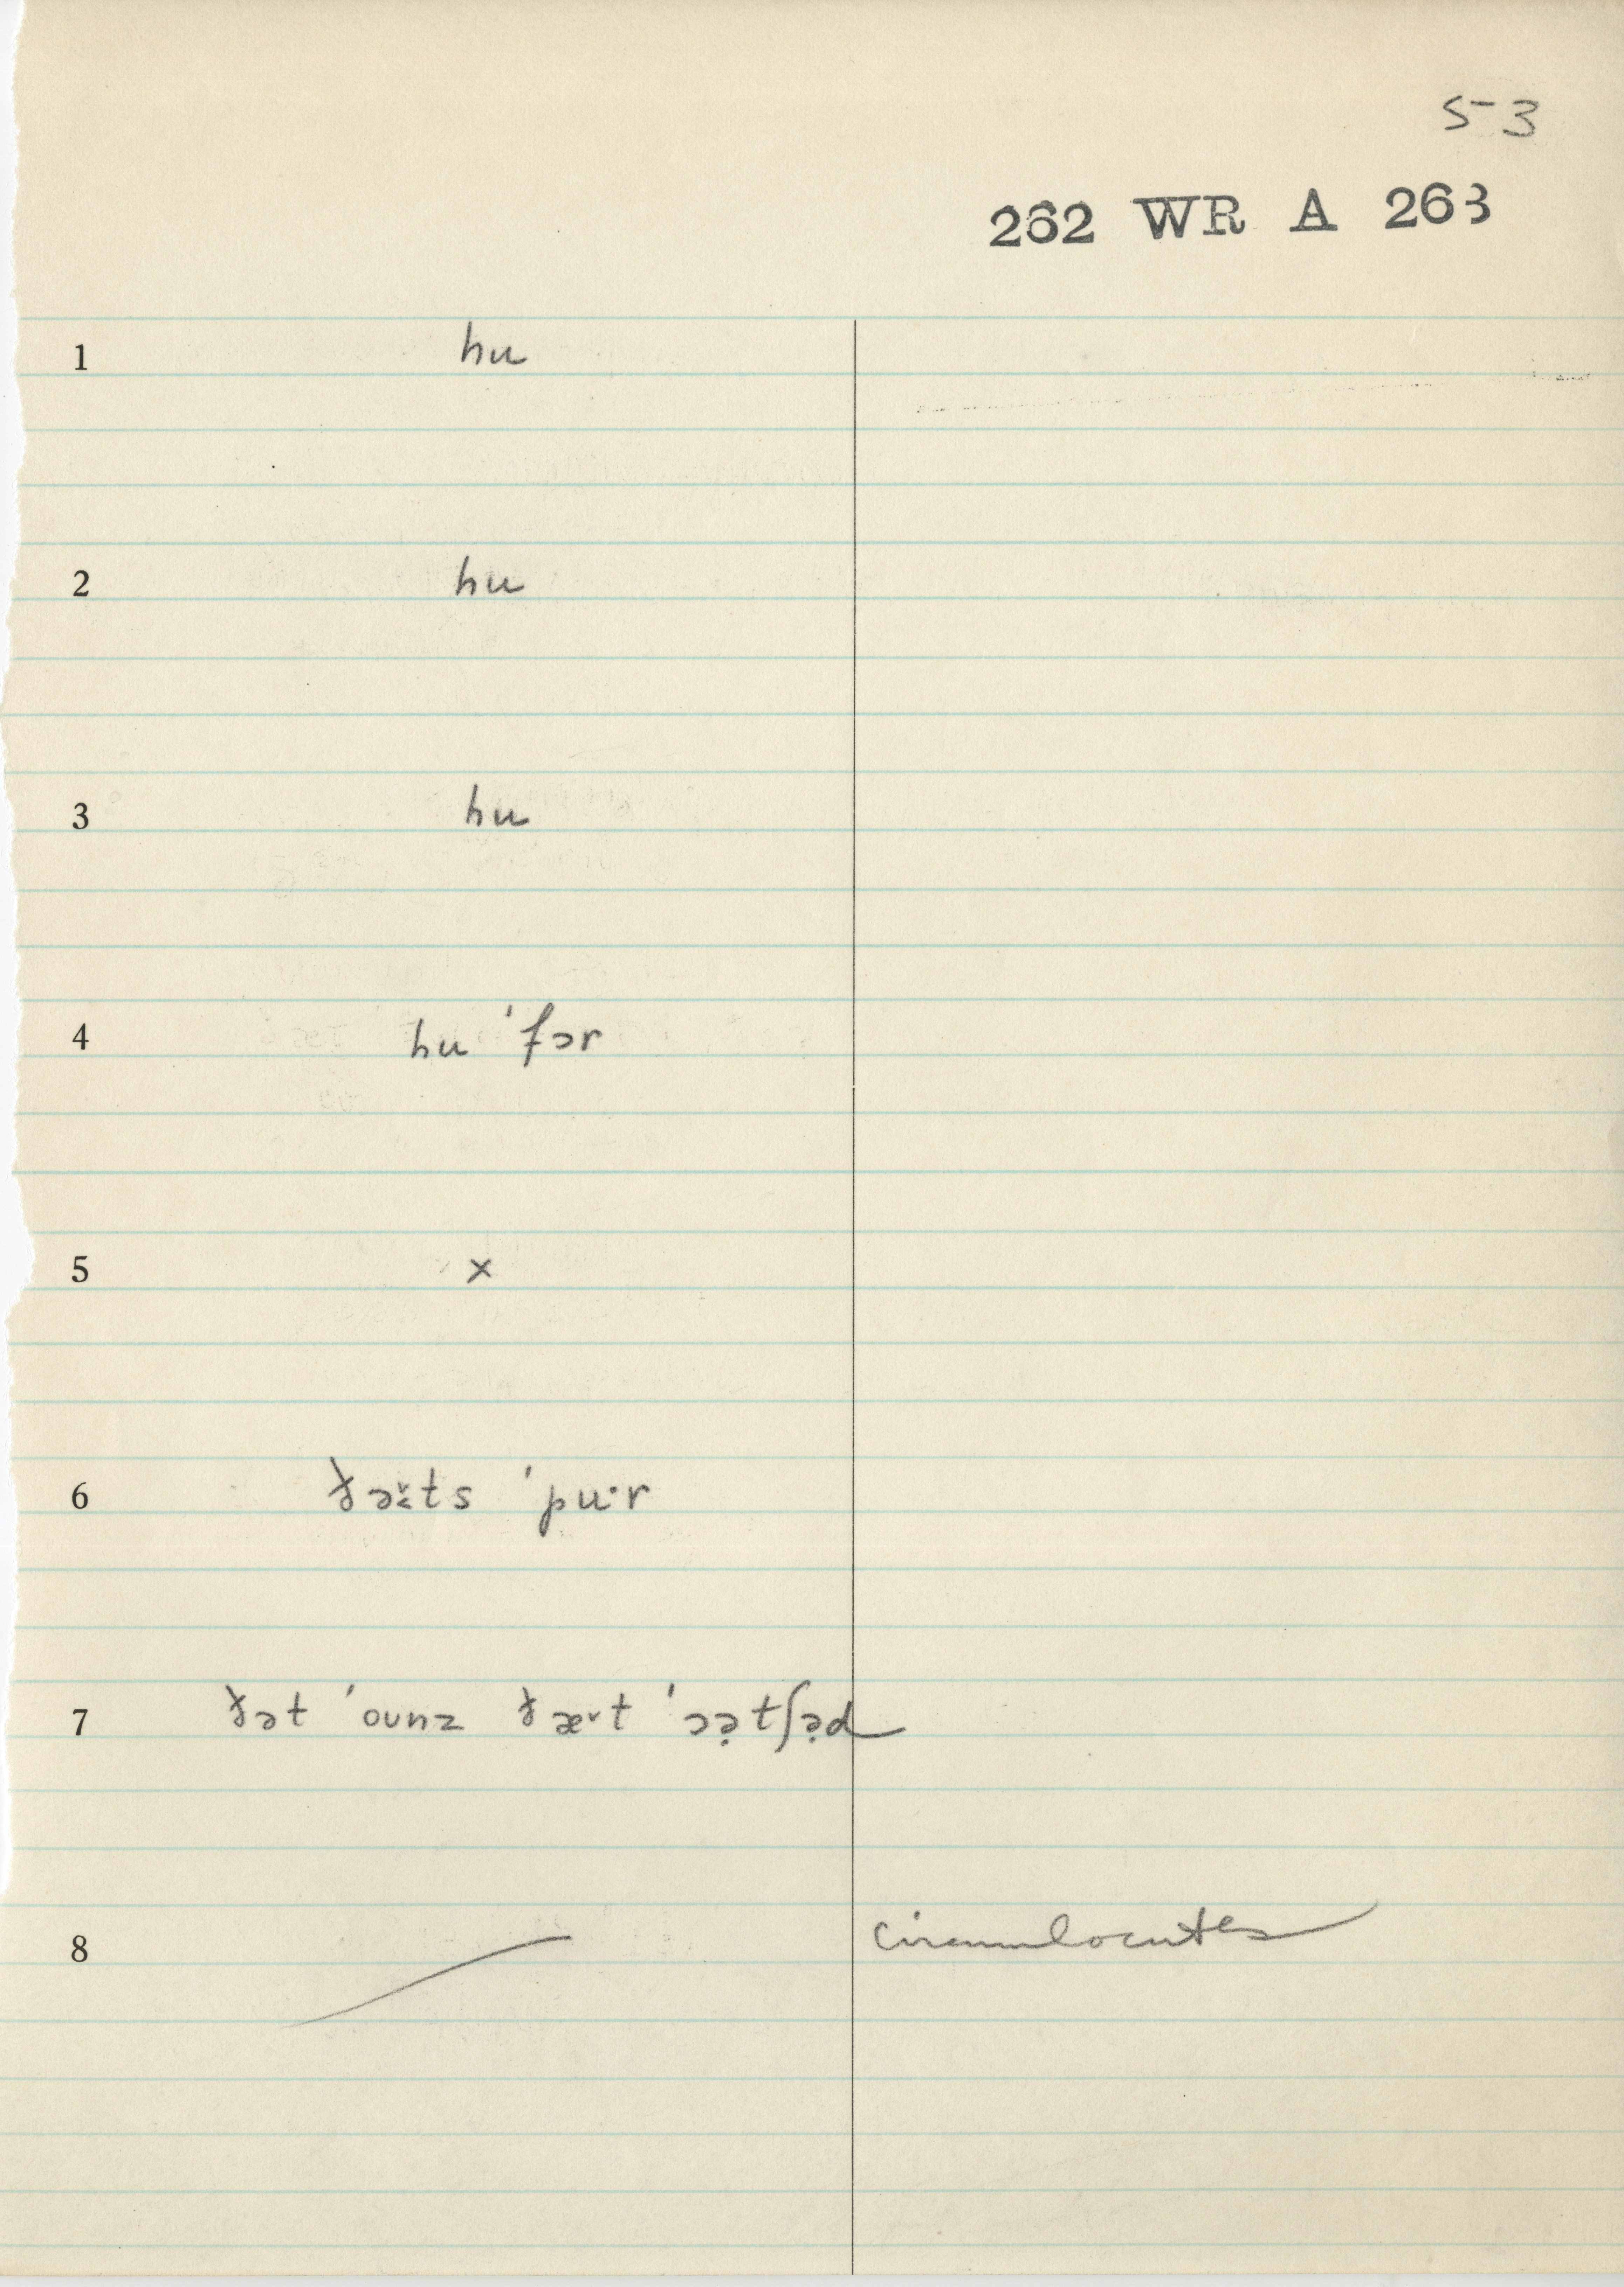 53
262 WR A 263
1 hu
2 hu
3 hu
4 hu ˈfɔr
5 x
6 ðə̬t̬s ˈpuˑr
7 ðət ˈoʊnz ðæ˅t ˈɔə̣tʃə̣d
8 circumlocutes